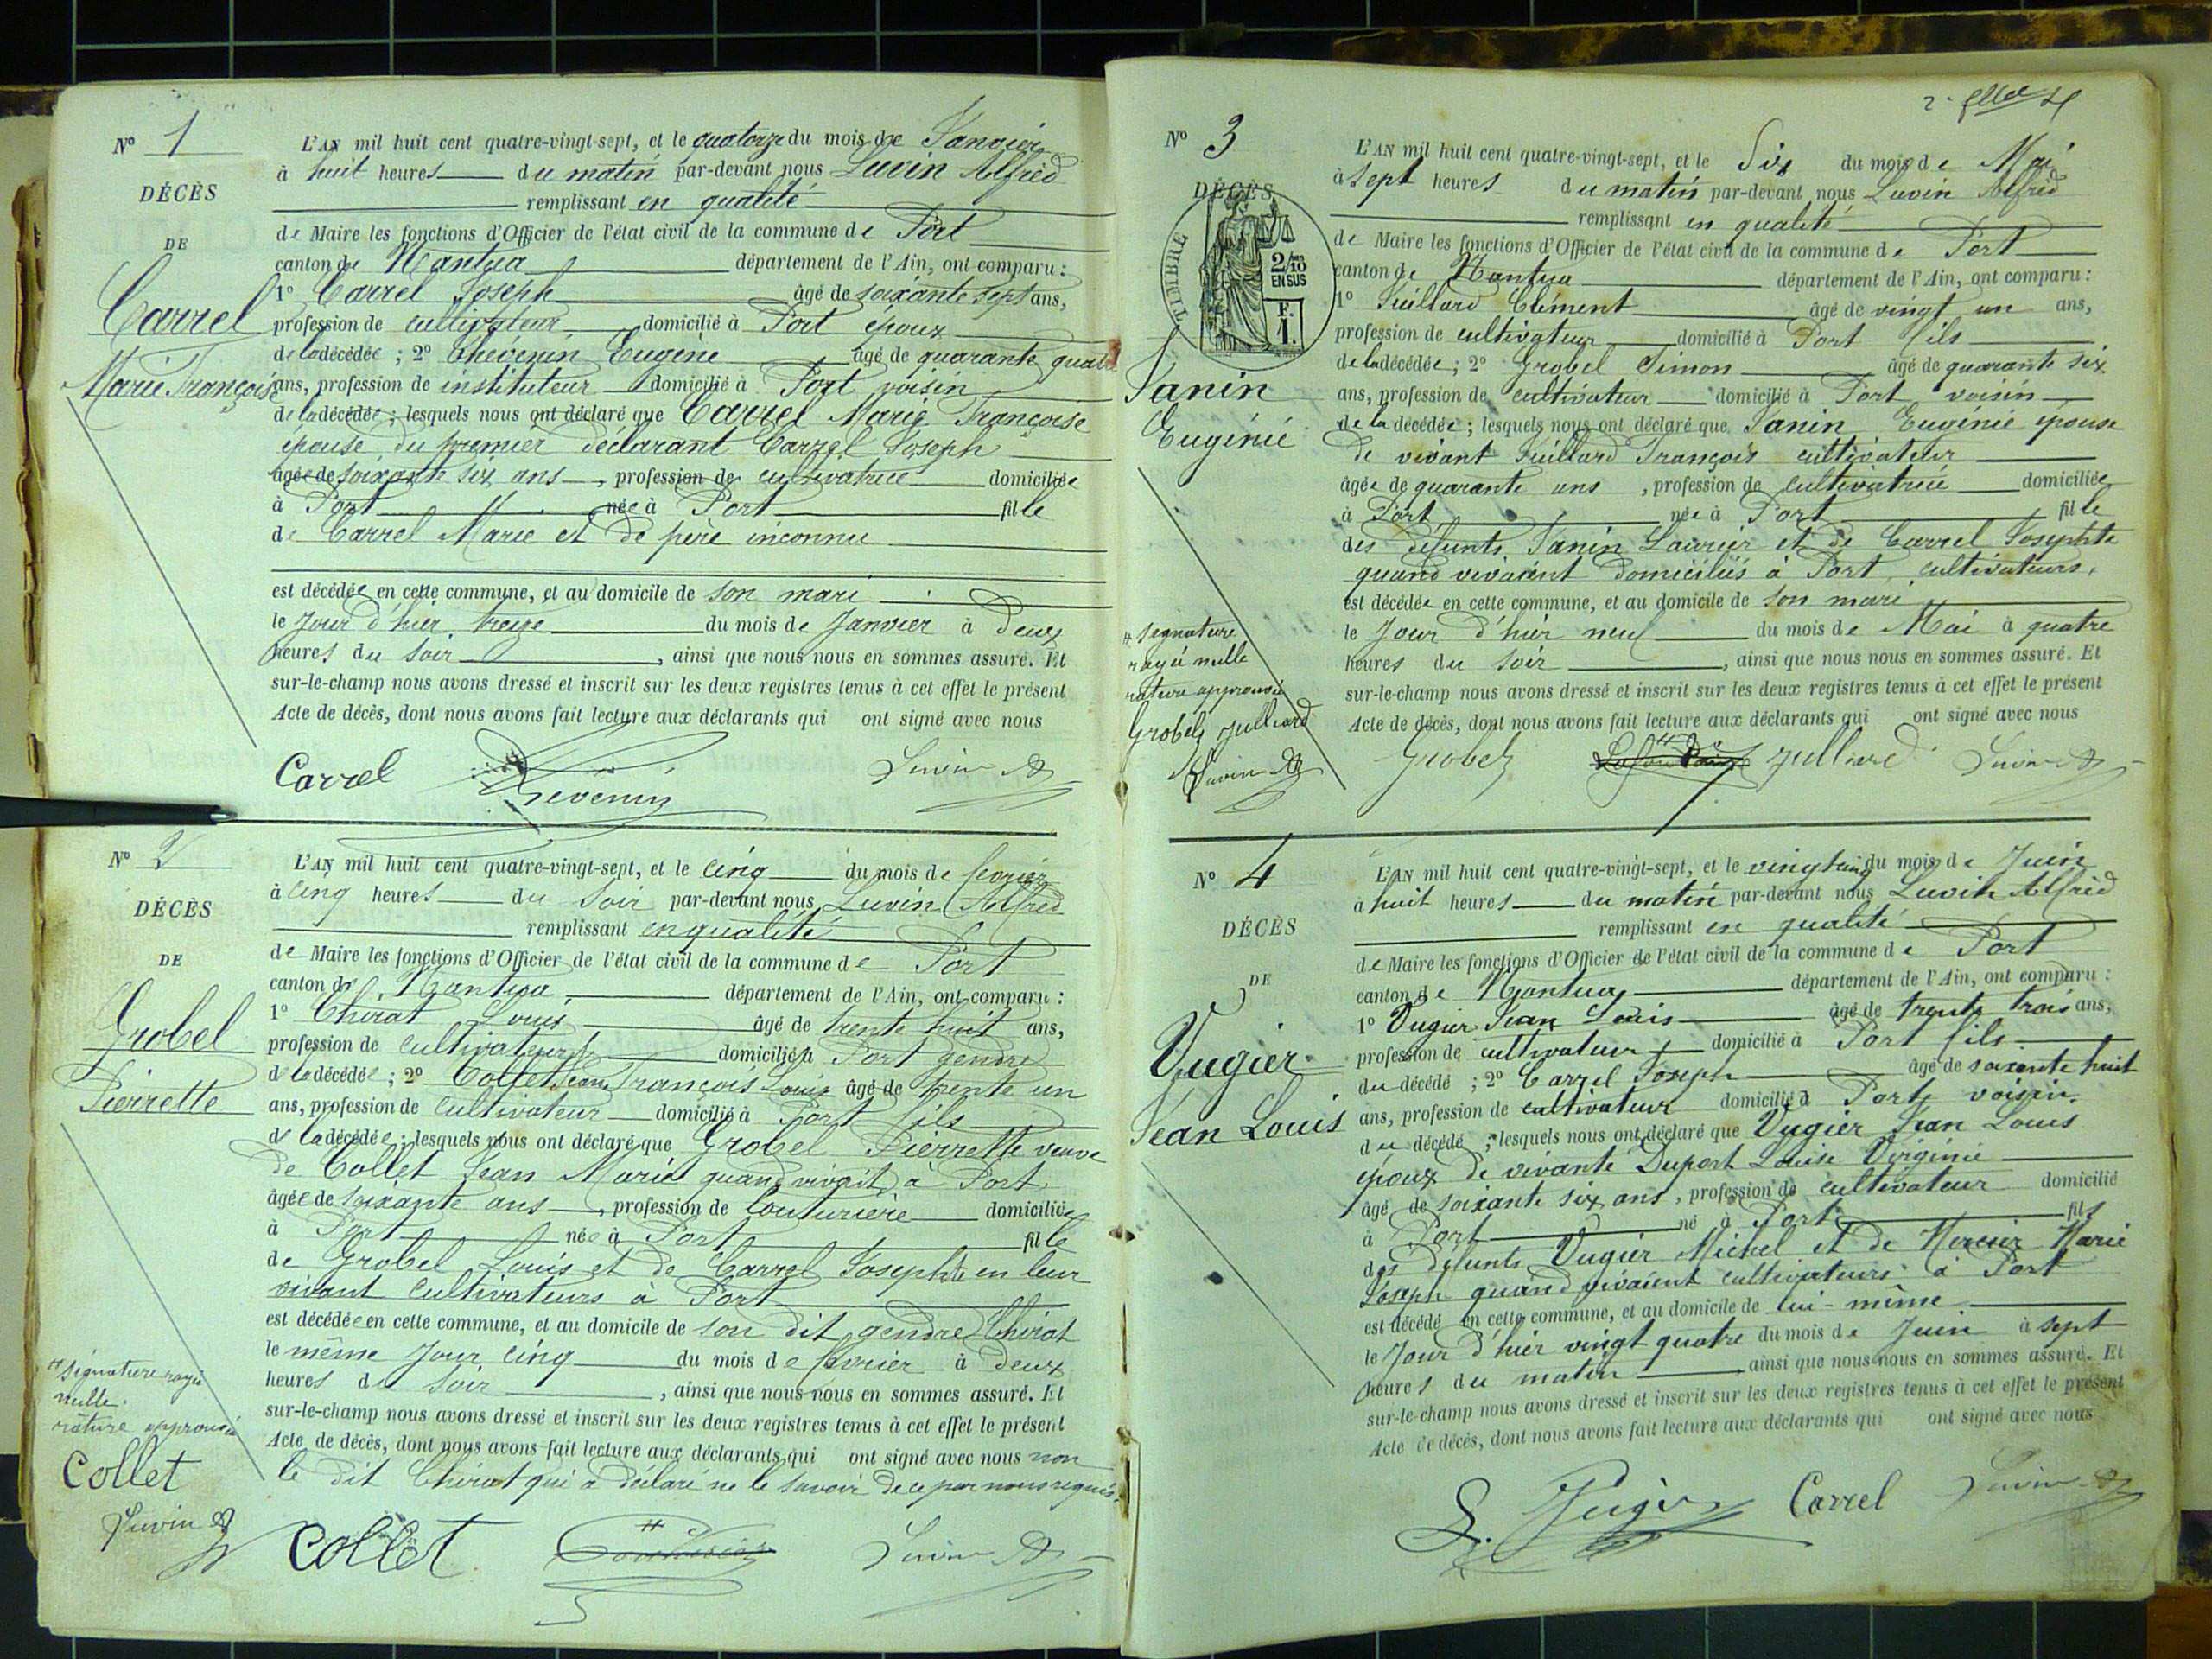 N° 1
DÉCÈS
DE
Carrel
Marie Françoise
L'AN mil huit cent quatre-vingt-sept, et le quatorze du mois de Janvier
à huit heures du matin par-devant nous Luvin Alfred
remplissant en qualité
de Maire les fonctions d'Officier de l'état civil de la commune de Port
canton de Nantua département de l'Ain, ont comparu :
1° Carrel Joseph âgé de soixante sept ans,
profession de cultivateur domicilié à Port époux
de la décédée ; 2° Thévenin Eugène âgé de quarante quatre
ans, profession de instituteur domicilié à Port voisin
de la décédée ; lesquels nous ont déclaré que Carrel Marie Françoise
épouse du premier déclarant Carrel Joseph
âgée de soixante six ans, profession de cultivatrice domiciliée
à Port née à Port fille
de Carrel Marie et de père inconnu
est décédée en cette commune, et au domicile de son mari
le Jour d'hier treize du mois de Janvier à deux
heures du soir, ainsi que nous nous en sommes assuré. Et
sur-le-champ nous avons dressé et inscrit sur les deux registres tenus à cet effet le présent
Acte de décès, dont nous avons fait lecture aux déclarants qui ont signé avec nous
Carrel Thevenin Luvin A
N° 2
DÉCÈS
DE
Grobel
Pierrette
L'AN mil huit cent quatre-vingt-sept, et le cinq du mois de fevrier
à cinq heures du soir par-devant nous Luvin Alfred
remplissant en qualité
de Maire les fonctions d'Officier de l'état civil de la commune de Port
canton de Nantua département de l'Ain, ont comparu :
1° Chirat Louis âgé de trente huit ans,
profession de cultivateur domicilié à Port gendre
de la décédée ; 2° Collet Jean François Louis âgé de trente un
ans, profession de cultivateur domicilié à Port fils
de la décédée ; lesquels nous ont déclaré que Grobel Pierrette veuve
de Collet Jean Marie quand vivait à Port
âgée de soixante ans, profession de couturière domiciliée
à Port née à Port fille
de Grobel Louis et de Carrel Josephte en leur
vivant cultivateurs à Port
est décédée en cette commune, et au domicile de son dit gendre Chirat
le même jour cinq du mois de fevrier à deux
heures du soir, ainsi que nous nous en sommes assuré. Et
sur-le-champ nous avons dressé et inscrit sur les deux registres tenus à cet effet le présent
Acte de décès, dont nous avons fait lecture aux déclarants qui ont signé avec nous non
le dit Chirat qui a déclaré ne le savoir de ce par nous requis.
# signature rayée
nulle.
rature approuvée
Collet
Luvin A
Collet Luvin A
2e fllet
N° 3
DÉCÈS
TIMBRE
2/10
EN SUS
F.
1.
Janin
Eugénie
L'AN mil huit cent quatre-vingt-sept, et le Six du mois de Mai
à sept heures du matin par-devant nous Luvin Alfred
remplissant en qualité
de Maire les fonctions d'Officier de l'état civil de la commune de Port
canton de Nantua département de l'Ain, ont comparu :
1° Juillard Clément âgé de vingt un ans,
profession de cultivateur domicilié à Port fils
de la décédée ; 2° Grobel Simon âgé de quarante six
ans, profession de cultivateur domicilié à Port voisin
de la décédée ; lesquels nous ont déclaré que Janin Eugénie épouse
de vivant Juillard François cultivateur
âgée de quarante ans, profession de cultivatrice domiciliée
à Port née à Port fille
des défunts Janin Laurier et de Carrel Josephte
quand vivaient domiciliés à Port cultivateurs,
est décédée en cette commune, et au domicile de son mari
le Jour d'hier neuf du mois de Mai à quatre
heures du soir, ainsi que nous nous en sommes assuré. Et
sur-le-champ nous avons dressé et inscrit sur les deux registres tenus à cet effet le présent
Acte de décès, dont nous avons fait lecture aux déclarants qui ont signé avec nous
# signature
rayée nulle
rature approuvée
Grobel Julliard
Luvin A
Grobel Julliard Luvin A
N° 4
DÉCÈS
DE
Vugier
Jean Louis
L'AN mil huit cent quatre-vingt-sept, et le vingt cinq du mois de Juin
à huit heures du matin par-devant nous Luvin Alfred
remplissant en qualité
de Maire les fonctions d'Officier de l'état civil de la commune de Port
canton de Nantua département de l'Ain, ont comparu :
1° Vugier Jean Louis âgé de trente trois ans,
profession de cultivateur domicilié à Port fils
du décédé ; 2° Carrel Joseph âgé de soixante huit
ans, profession de cultivateur domicilié à Port, voisin.
du décédé ; lesquels nous ont déclaré que Vugier Jean Louis
époux de vivante Duport Louise Virginie
âgé de soixante six ans, profession de cultivateur domicilié
à Port né à Port fils
des défunts Vugier Michel et de Mercier Marie
Joseph quand vivaient cultivateurs à Port
est décédé en cette commune, et au domicile de lui-même
le Jour d'hier vingt quatre du mois de Juin à sept
heures du matin, ainsi que nous nous en sommes assuré. Et
sur-le-champ nous avons dressé et inscrit sur les deux registres tenus à cet effet le présent
Acte de décès, dont nous avons fait lecture aux déclarants qui ont signé avec nous
L. Vugier Carrel Luvin A